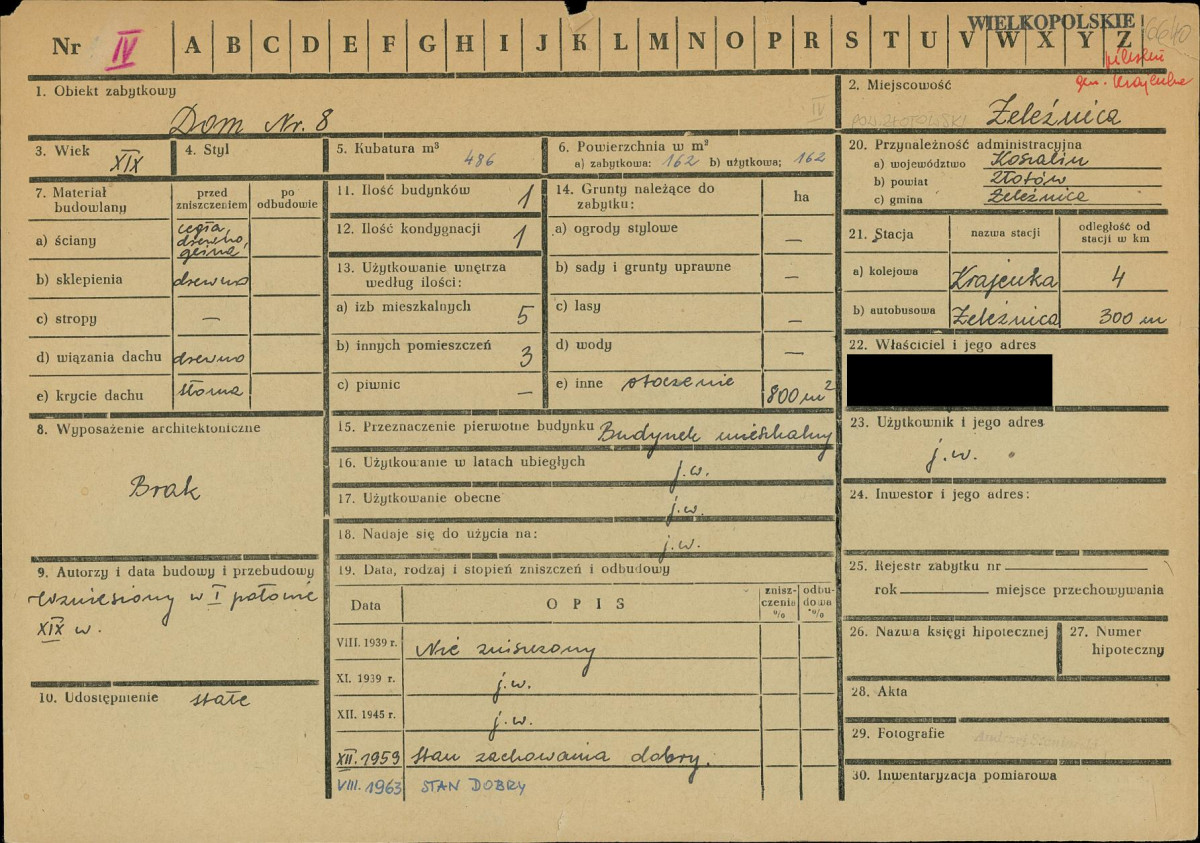 WIELKOPOLSKIE
Nr IV A B C D E F G H I J K L M N O P R S T U V W X Y Z
pilskie
gm. Krajenka
1. Obiekt zabytkowy
Dom Nr. 8
IV
2. Miejscowość
POW. ZŁOTOWSKI
Żeleźnica
3. Wiek
XIX
4. Styl
5. Kubatura m³
486
6. Powierzchnia w m²
a) zabytkowa: 162 b) użytkowa; 162
7. Materiał budowlany
przed zniszczeniem
po odbudowie
a) ściany
cegła,
drewno,
glina
b) sklepienia drewno
c) stropy —
d) wiązania dachu drewno
e) krycie dachu słoma
8. Wyposażenie architektoniczne
Brak
9. Autorzy i data budowy i przebudowy
Wzniesiony w I połowie
XIX w.
10. Udostępnienie stałe
11. Ilość budynków 1
12. Ilość kondygnacji 1
13. Użytkowanie wnętrza
według ilości:
a) izb mieszkalnych 5
b) innych pomieszczeń 3
c) piwnic —
14. Grunty należące do
zabytku:
ha
a) ogrody stylowe —
b) sady i grunty uprawne —
c) lasy —
d) wody —
e) inne otoczenie 800 m²
15. Przeznaczenie pierwotne budynku Budynek mieszkalny
16. Użytkowanie w latach ubiegłych j.w.
17. Użytkowanie obecne j.w.
18. Nadaje się do użycia na: j.w.
19. Data, rodzaj i stopień zniszczeń i odbudowy
Data
OPIS
znisz-
czenia
%
odbu-
dowa
%
VIII. 1939 r. Nie zniszczony
XI. 1939 r. j.w.
XII. 1945 r. j.w.
XII. 1959 Stan zachowania dobry.
VIII. 1963 STAN DOBRY
20. Przynależność administracyjna
a) województwo Koszalin
b) powiat Złotów
c) gmina Żeleźnica
21. Stacja
nazwa stacji
odległość od
stacji w km
a) kolejowa Krajenka 4
b) autobusowa Żeleźnica 300 m
22. Właściciel i jego adres
23. Użytkownik i jego adres
j.w.
24. Inwestor i jego adres:
25. Rejestr zabytku nr
rok miejsce przechowywania
26. Nazwa księgi hipotecznej
27. Numer
hipoteczny
28. Akta
29. Fotografie
30. Inwentaryzacja pomiarowa